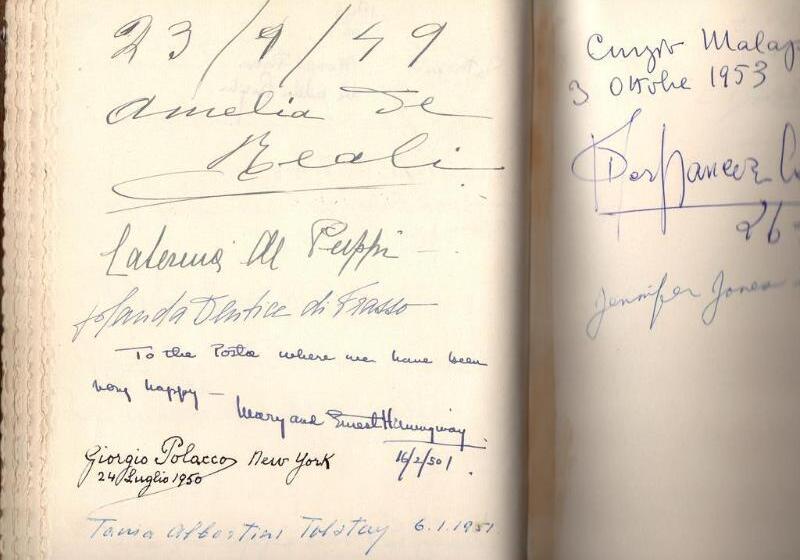 23/9/49
Amelia de
Reali
Caterina
Jolanda Dentice di Frasso
To the Posta where we have been
very happy —
Mary and Ernest Hemingway
16/2/50
Giorgio Polacco New York
24 Luglio 1950
Tania Albertini Tolstoy 6.1.1951
Curzio Malap
3 Ottobre 1953
26-
Jennifer Jones